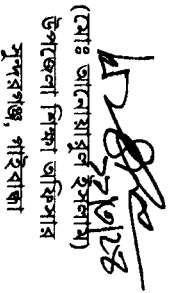 (মোঃ আনোয়ারুল ইসলাম)
উপজেলা শিক্ষা অফিসার
সুন্দরগঞ্জ, গাইবান্ধা